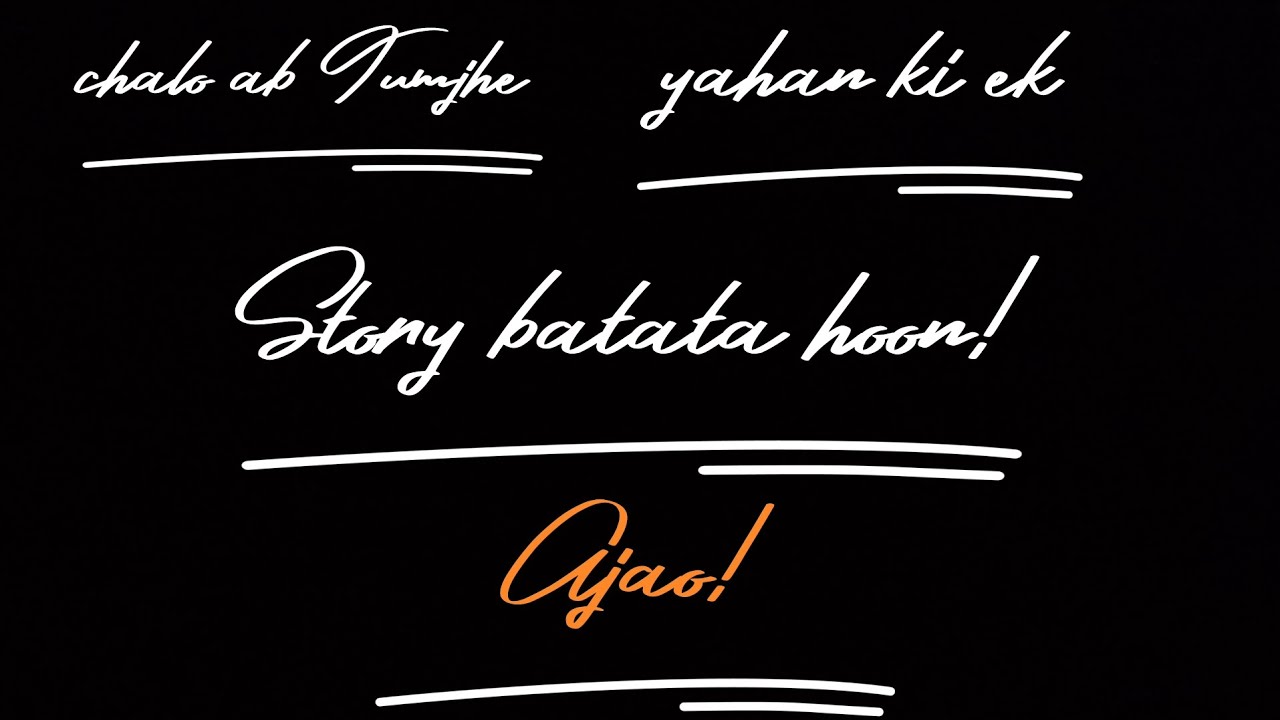 chalo ab Tumjhe yahan ki ek
Story batata hoon!
Ajao!